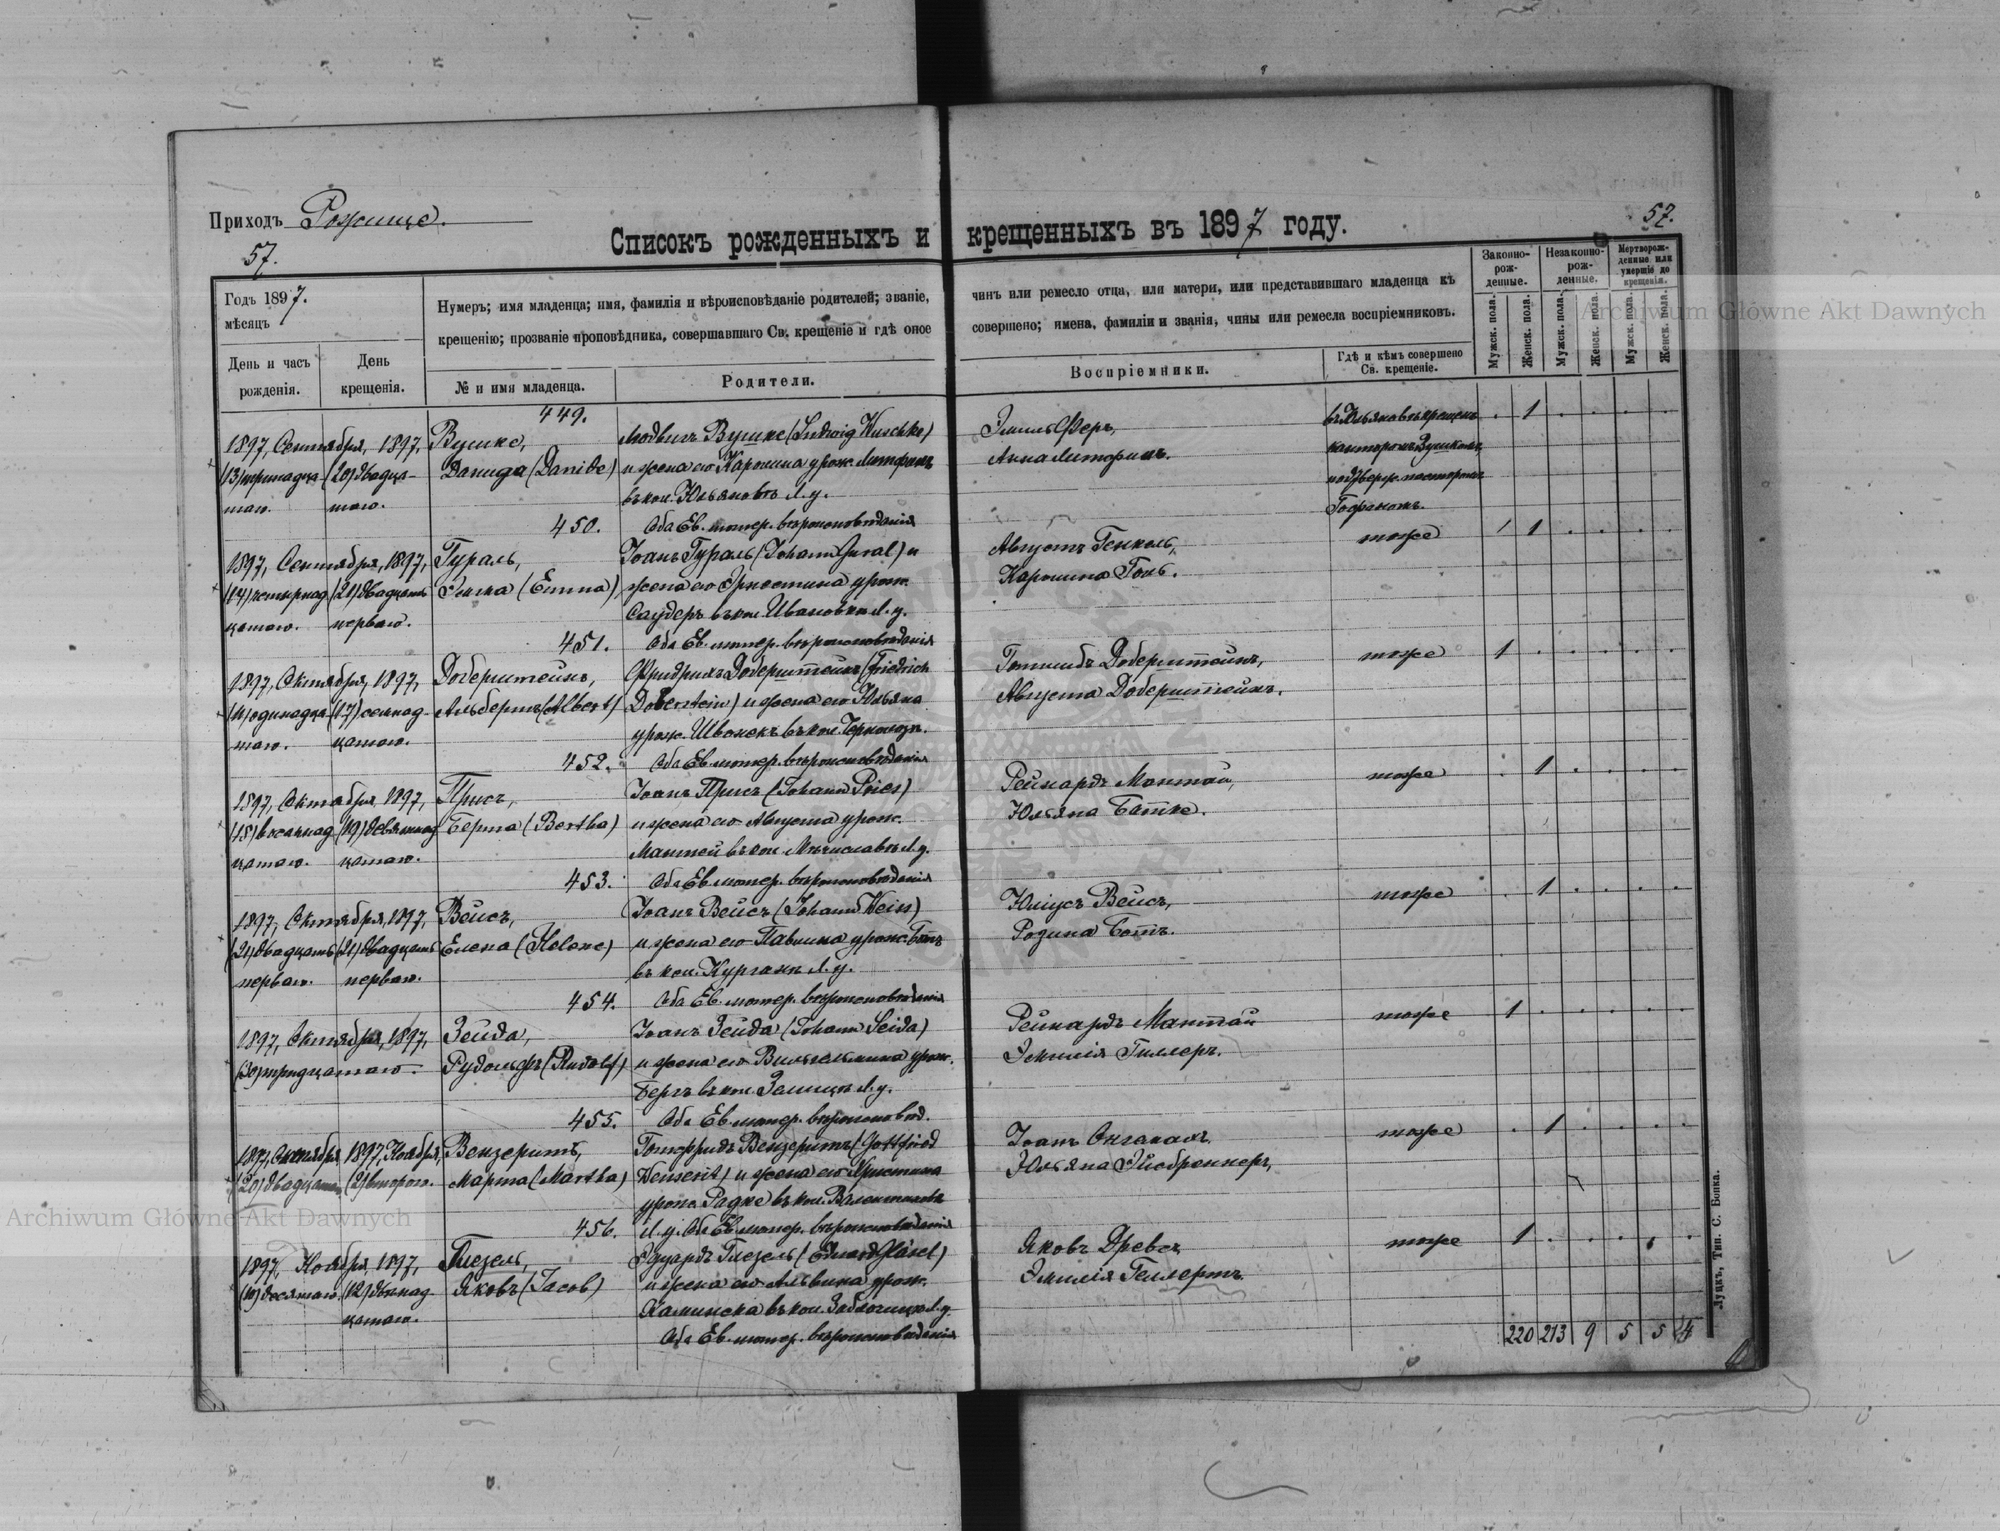 Приходъ Рожище.
57.
57.
Списокъ рожденныхъ и крещенныхъ въ 1897 году.
Годъ 1897.
мѣсяцъ
День и часъ рожденія.
День крещенія.
Нумеръ; имя младенца; имя, фамилія и вѣроисповѣданіе родителей; званіе,
чинъ или ремесло отца, или матери, или представившаго младенца къ
крещенію; прозваніе проповѣдника, совершавшаго Св. крещеніе и гдѣ оное
совершено; имена, фамиліи и званія, чины или ремесла воспріемниковъ.
№ и имя младенца.
Родители.
Воспріемники.
Гдѣ и кѣмъ совершено Св. крещеніе.
Законно-рож-денные.
Незаконно-рож-денные.
Мертворож-денные или умершіе до крещенія.
Мужск. пола.
Женск. пола.
Мужск. пола.
Женск. пола.
Мужск. пола.
Женск. пола.
449.
1897, Сентября, 1897,
(13) тринадца-таго.
(20) двадца-таго.
Вушке,
Данида (Danide)
Людвигъ Вушке (Ludwig Wuschke)
и жена его Каролина урож. Литфинъ
въ кол. Юльяновъ Л. у.
Оба Ев. лютер. вѣроисповѣданія
Эмиль Феръ,
Анна Литфинъ.
канторомъ Вушкомъ,
подтверж. пасторомъ
1
450.
1897, Сентября, 1897,
(14) четырнад-цатаго.
(21) двадцать перваго.
Гураль,
Эмма (Emma)
Іоанъ Гураль (Johann Gural) и
жена его Эрнестина урож.
Саудеръ въ кол. Ивановка Л. у.
Оба Ев. лютер. вѣроисповѣданія
Августъ Генкель,
Каролина Голь.
тоже
1
451.
1897, Октября, 1897,
(11) одинадца-таго.
(17) семнад-цатаго.
Доберштейнъ,
Альбертъ (Albert)
Фридрихъ Доберштейнъ (Friedrich
Doberstein) и жена его Юльяна
Оба Ев. лютер. вѣроисповѣданія
Готлибъ Доберштейнъ,
Августа Доберштейнъ.
тоже
1
452.
1897, Октября, 1897,
(19) девятнад-цатаго.
Присъ,
Берта (Bertha)
Іоанъ Присъ (Johann Pries)
и жена его Августа урож.
Мантей въ кол. Мѣчиславъ Л. у.
Оба Ев. лютер. вѣроисповѣданія
Рейнардъ Мантай,
Юльяна Батке.
тоже
1
453.
1897, Октября, 1897,
(21) двадцать перваго.
(21) двадцать перваго.
Вейсъ,
Елена (Helene)
Іоанъ Вейсъ (Johann Weiss)
и жена его Павлина урож.
въ кол. Курганъ Л. у.
Оба Ев. лютер. вѣроисповѣданія
Юліусъ Вейсъ,
Розина
тоже
1
454.
1897, Октября, 1897,
(30) тридцатаго.
Зейда,
Рудольфъ (Rudolf)
Іоанъ Зейда (Johann Seida)
и жена его Вильгельмина урож.
Бергъ въ кол. Землица Л. у.
Оба Ев. лютер. вѣроисповѣд.
Рейнардъ Мантай
Эмилія Гиллеръ.
тоже
1
455.
1897, Октября
(20) двадцатаго
1897, Ноября,
(2) второго.
Вензеритъ,
Марта (Martha)
Готфридъ Вензеритъ (Gottfried
Wenserit) и жена его Христина
урож. Радке въ кол. Валентиновъ
Л. у. Оба Ев. лютер. вѣроисповѣданія
Іоанъ
Юльяна
тоже
1
456.
1897, Ноября, 1897,
(10) десятаго.
(12) двѣнад-цатаго.
Глезель,
Яковъ (Jacob)
Эдуардъ Глезель (Eduard Gläsel)
и жена его Альвина урож.
Каминска въ кол. Заблотица Л. у.
Оба Ев. лютер. вѣроисповѣданія
Яковъ Древсъ
Эмилія Геллертъ.
тоже
1
220 213 9 5 5 4
Луцкъ, Тип. С. Бонка.
Archiwum Główne Akt Dawnych
Archiwum Główne Akt Dawnych